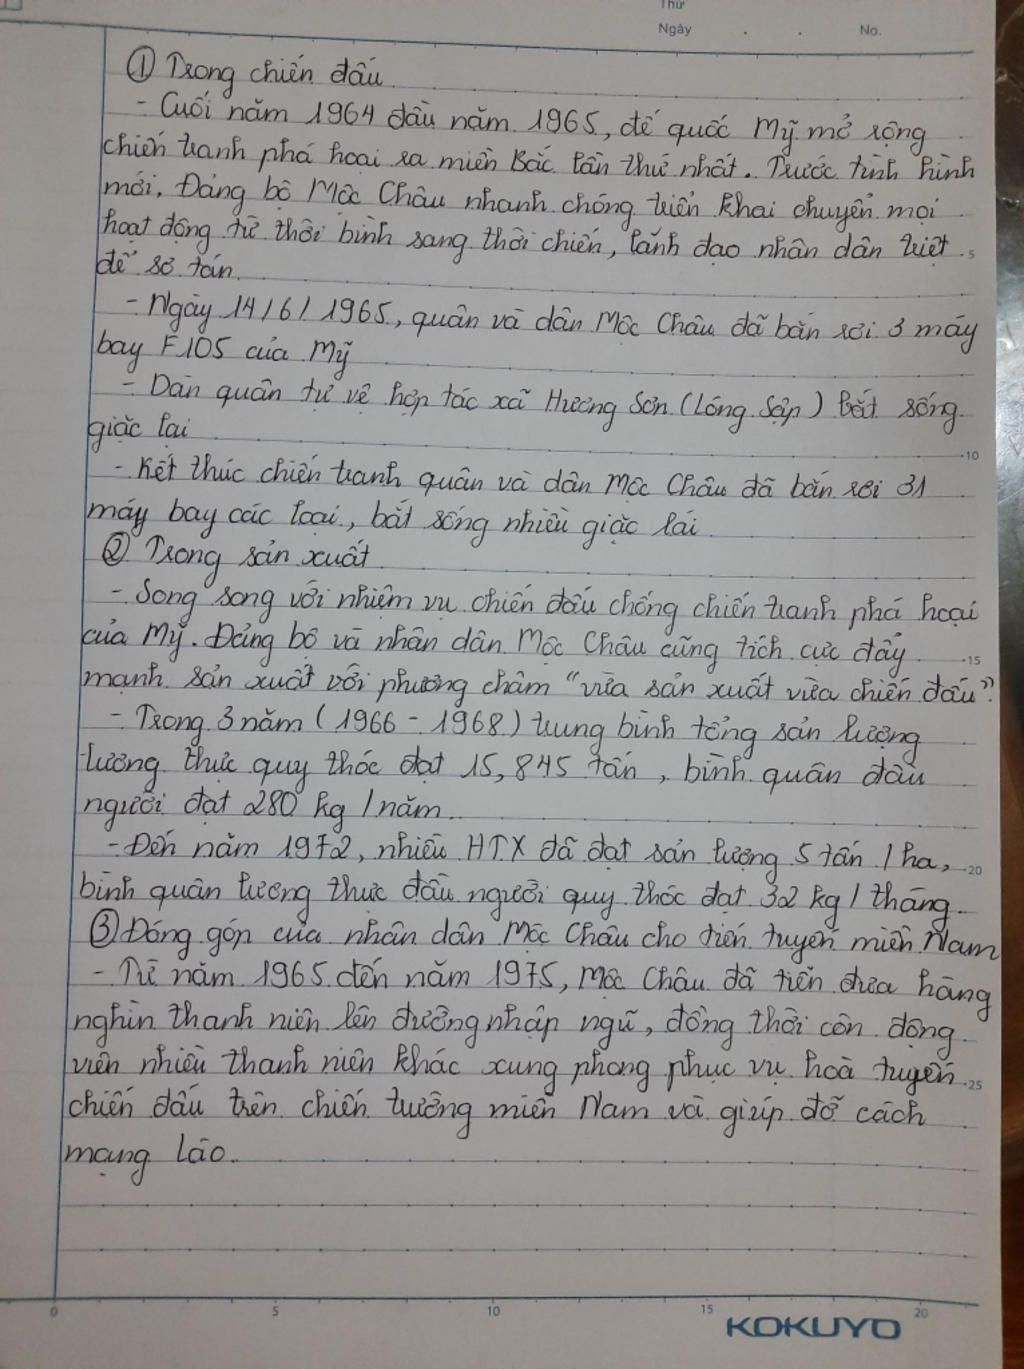 Thứ
Ngày . . No.
① Trong chiến đấu
- Cuối năm 1964 đầu năm 1965, đế quốc Mỹ mở rộng
chiến tranh phá hoại ra miền Bắc lần thứ nhất. Trước tình hình
mới, Đảng bộ Mộc Châu nhanh chóng triển khai chuyển mọi
hoạt động từ thời bình sang thời chiến, lãnh đạo nhân dân triệt
để sơ tán.
- Ngày 14/6/1965, quân và dân Mộc Châu đã bắn rơi 3 máy
bay F105 của Mỹ
- Dân quân tự vệ hợp tác xã Hương Sơn (Lóng Sập) bắt sống
giặc lái
- Kết thúc chiến tranh quân và dân Mộc Châu đã bắn rơi 31
máy bay các loại, bắt sống nhiều giặc lái
② Trong sản xuất
- Song song với nhiệm vụ chiến đấu chống chiến tranh phá hoại
của Mỹ. Đảng bộ và nhân dân Mộc Châu cũng tích cực đẩy
mạnh sản xuất với phương châm "vừa sản xuất vừa chiến đấu".
- Trong 3 năm (1966 - 1968) trung bình tổng sản lượng
lương thực quy thóc đạt 15,845 tấn, bình quân đầu
người đạt 280 kg/năm.
- Đến năm 1972, nhiều HTX đã đạt sản lượng 5 tấn/ha,
bình quân lương thực đầu người quy thóc đạt 32 kg/tháng.
③ Đóng góp của nhân dân Mộc Châu cho tiền tuyến miền Nam
- Từ năm 1965 đến năm 1975, Mộc Châu đã tiễn đưa hàng
nghìn thanh niên lên đường nhập ngũ, đồng thời còn động
viên nhiều thanh niên khác xung phong phục vụ hoả tuyến
chiến đấu trên chiến trường miền Nam và giúp đỡ cách
mạng Lào.
0 5 10 15 20
KOKUYO